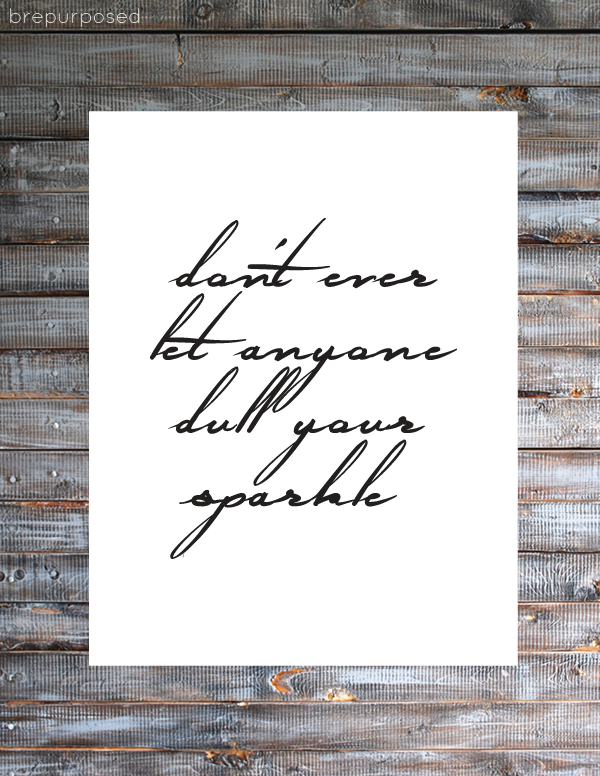 brepurposed
don't ever
let anyone
dull your
sparkle